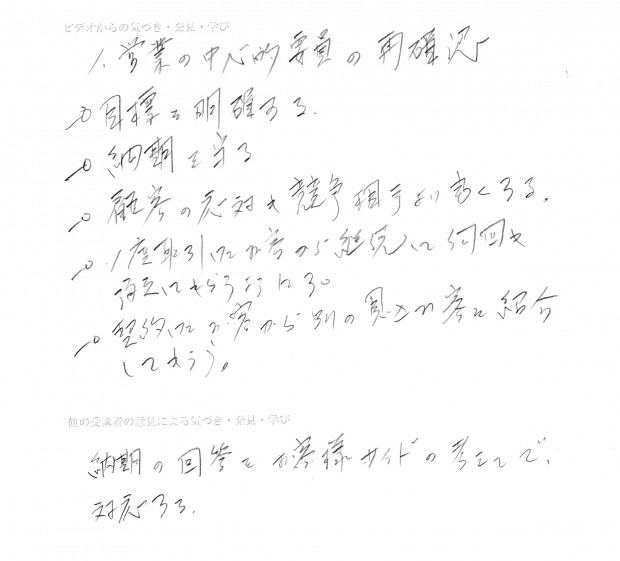 ビデオからの気づき・発見・学び
1.営業の中心的要員の再確認
→○目標を明確する.
→○納期を守る
→○顧客の応対を競争相手より良くする。
→○1度取引したお客から継続して何回も
してもらうようにする
→○契約したお客から別の見込み客を紹介
してもらう。
他の受講者の意見による気づき・発見・学び
納期の回答をお客様サイドの考えで、
対応する.